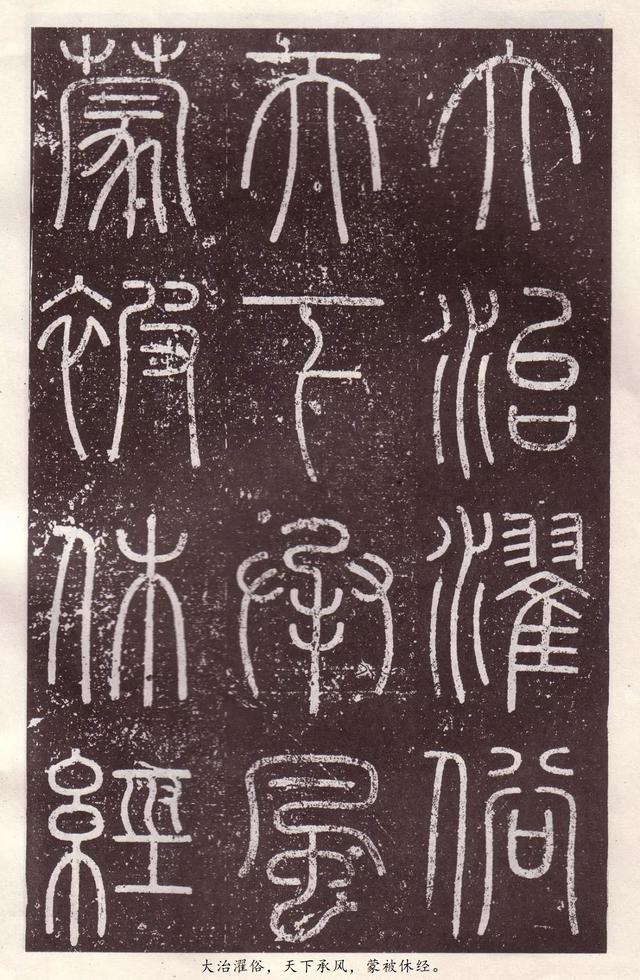 大治濯俗
天下承風
蒙被休經
大治濯俗，天下承风，蒙被休经。